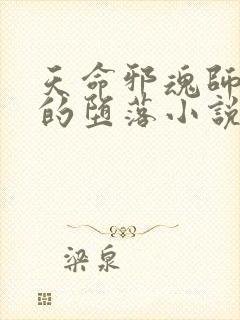 天命邪魂師
的墮落小說
梁泉